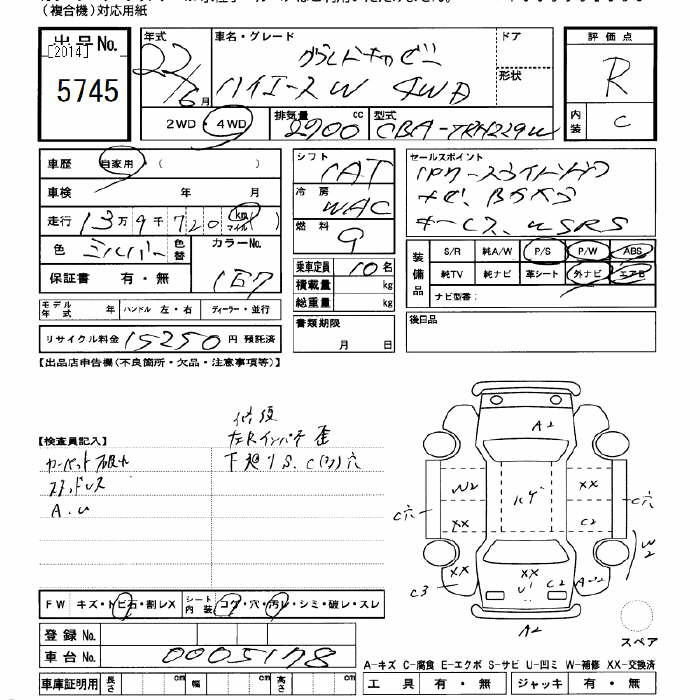 （複合機）対応用紙
出品No.
[2014]
5745
年式
22/6月
車名・グレード
グランドキャビン
ハイエースW 4WD
ドア
形状
評価点
R
内装
C
2WD・4WD
排気量 2700 cc
型式 CBA-TRH229W
車歴 自家用 （ ）
車検 年 月
走行 13万9千720 km マイル
色 シルバー 色替
カラーNo. 1E7
保証書 有・無
シフト IAT
冷房 WAC
燃料 g
乗車定員 10名
積載量 kg
総重量 kg
セールスポイント
ナビ、Bカメラ
キーレス、WSRS
装備品
S/R 純A/W P/S P/W ABS
純TV 純ナビ 革シート 外ナビ エアB
ナビ型番：
モデル年式 年 ハンドル 左・右 ディーラー・並行
書類期限 月 日
後日品
リサイクル料金 15250 円 預託済
【出品店申告欄（不良箇所・欠品・注意事項等）】
【検査員記入】
修復
左Rインパネ 歪
下廻りS、C(ク)穴
スタッドレス
A.U
A2
W2
XX
ハゲ
XX
C2
C穴
C穴
XX
C3
XX
XX
U1
C2
W2
A2
FW キズ・トビ石・割レX シート内装 コゲ・穴・汚レ・シミ・破レ・スレ
登録No.
車台No. 0005178
車庫証明用 長さ cm 幅 cm 高さ cm
スペア
A-キズ C-腐食 E-エクボ S-サビ U-凹ミ W-補修 XX-交換済
工具 有・無 ジャッキ 有・無